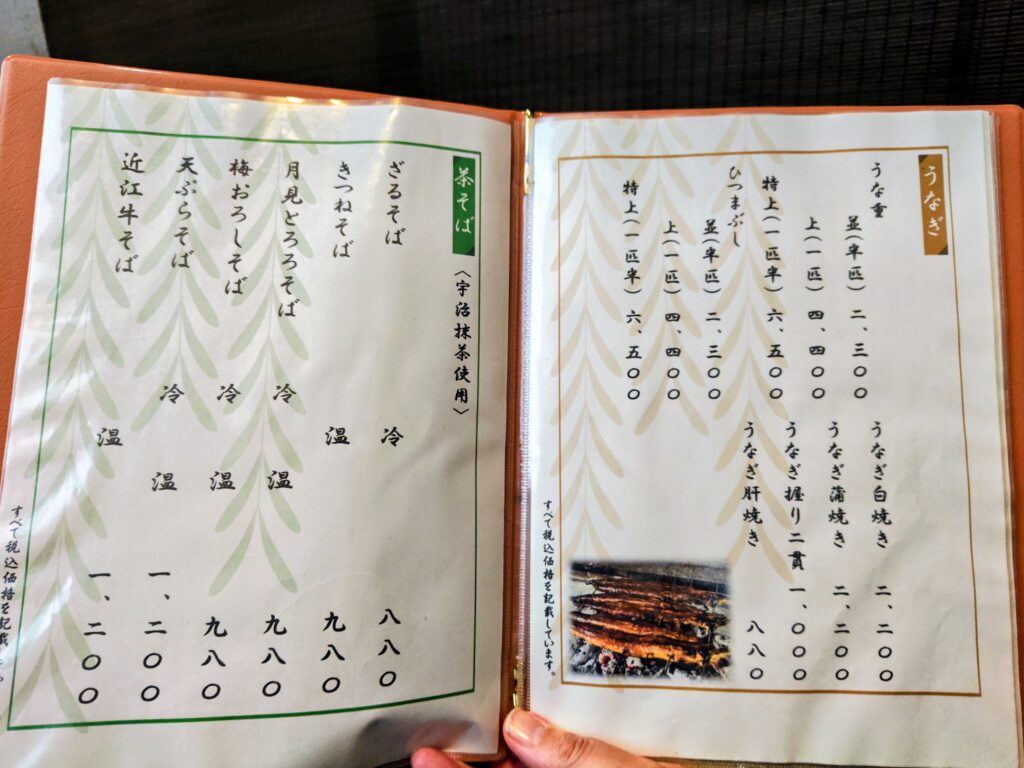 うなぎ
うな重
並(半匹) 二、三〇〇
上(一匹) 四、四〇〇
特上(一匹半) 六、五〇〇
ひつまぶし
並(半匹) 二、三〇〇
上(一匹) 四、四〇〇
特上(一匹半) 六、五〇〇
うなぎ白焼き 二、二〇〇
うなぎ蒲焼き 二、二〇〇
うなぎ握り二貫 一、〇〇〇
うなぎ肝焼き 八八〇
すべて税込価格を記載しています。
茶そば 〈宇治抹茶使用〉
ざるそば 冷 八八〇
きつねそば 温 九八〇
月見とろろそば 冷 温 九八〇
梅おろしそば 冷 温 九八〇
天ぷらそば 冷 温 一、二〇〇
近江牛そば 温 一、二〇〇
すべて税込価格を記載し